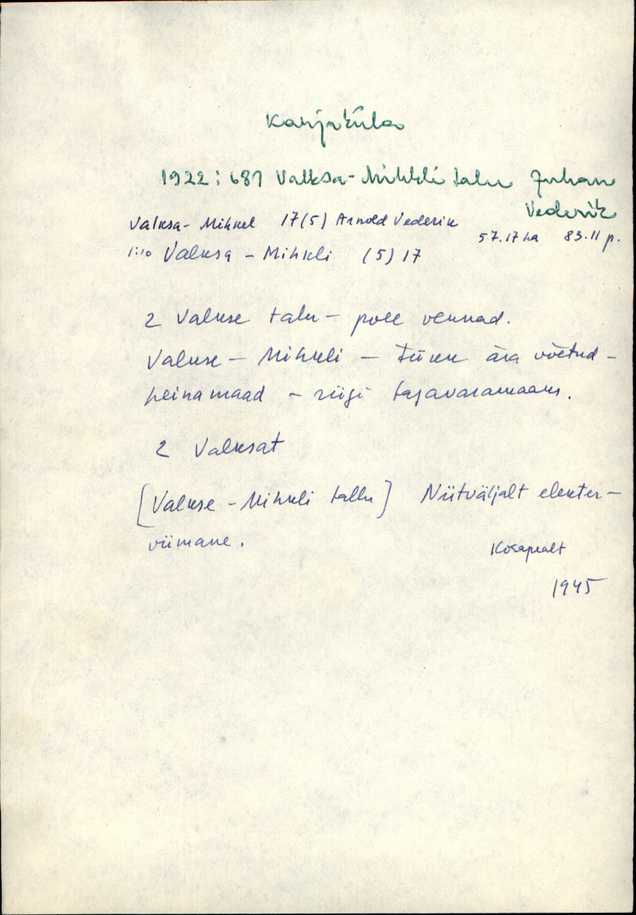 Karjaküla
1922: 681 Valksa-Mihkli talu Juhan
Vederik
Valksa-Mihkel 17(5) Arnold Vederik 57.17 ha 83.11 p.
1:10 Valksa - Mihkli (5) 17
2 Valkse talu - pole vennad.
Valkse - Mihkli - tükk ära võetud -
heinamaad - riigi tagavaramaaks.
2 Valksat
[Valkse - Mihkli tallu] Niitväljalt elekter -
viimane.
Kosapealt
1945